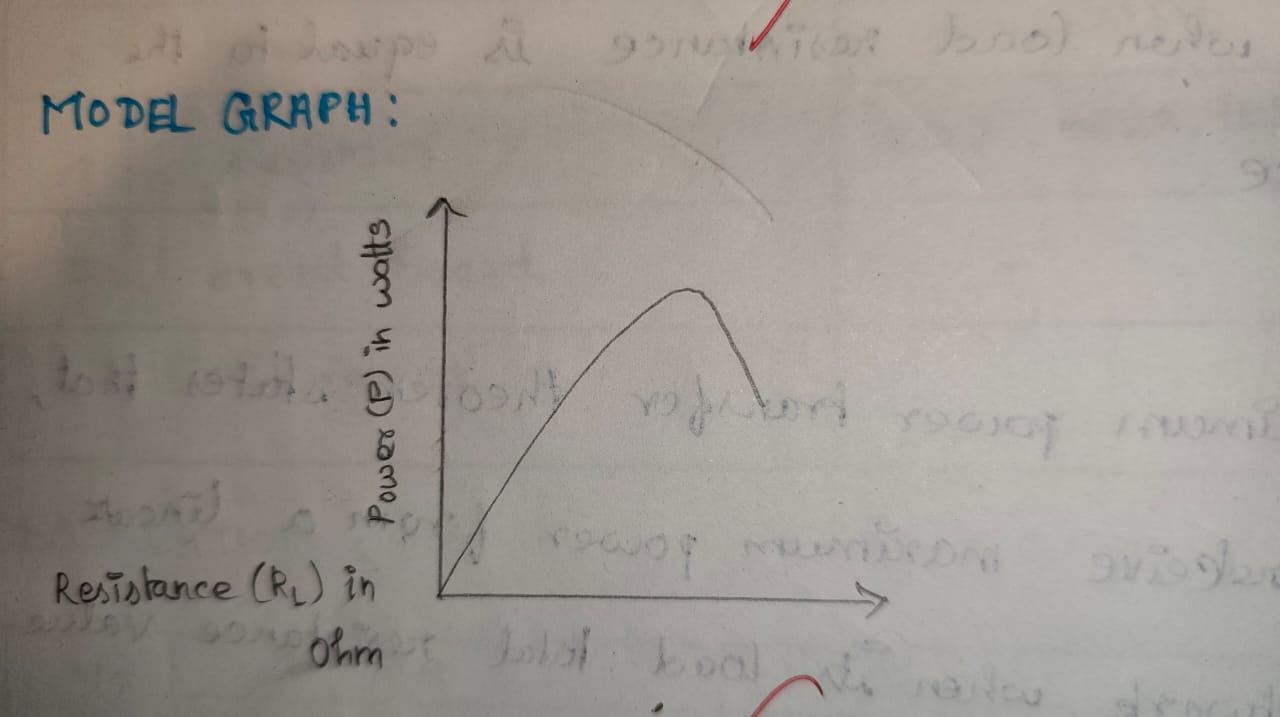 MODEL GRAPH:
Power (P) in watts
Resistance (RL) in
Ohm